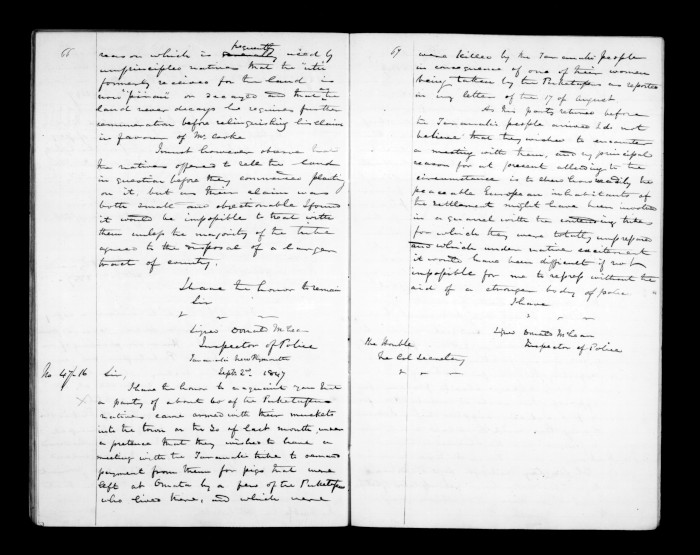 66
frequently
reason which is generally used by
unprincipled natives that the utu
formerly received for the land is
now "pirau" or decayed and that the
land never decays he requires further
remuneration before relinquishing his claim
in favour of Mr. Cooke
I must however observe that
the natives offered to sell the land
in question before they commenced planting
on it, but as their claim was
both small and objectionable I found
it would be impossible to treat with
them unless the majority of the tribe
agreed to the disposal of a larger
tract of country.
I have the honor to remain
Sir
Signed Donald McLean
Inspector of Police
Taranaki New Plymouth
Sept. 2nd. 1847
No 47-16 Sir,
I have the honor to acquaint you that
a party of about 60 of the Puketapu
natives came armed with their muskets
into the town on the 30 of last month, under
a pretence that they wished to have a
meeting with the Taranaki tribe to demand
payment from them for pigs that were
left at Omata by a few of the Puketapu
who lived there, and which were
67
were killed by the Taranaki people
in consequence of one of their women
being taken by the Puketapu as reported
in my letter of the 17 of August
As this party returned before
the Taranaki people arrived I do not
believe that they wished to encounter
a meeting with them, and my principal
reason for at present alluding to the
circumstance is to show how easily the
peaceable European inhabitants of
the settlement might have been involved
in a quarrel with the contending tribes
for which they were totally unprepared
and which under native excitement
it would have been difficult if not
impossible for me to repress without the
aid of a stronger body of police
I have
Signed Donald McLean
Inspector of Police
The Honble
The Col Secretary